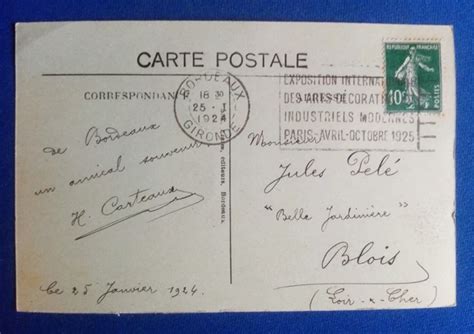 CARTE POSTALE
CORRESPONDANCE
BORDEAUX
18 30
25 - I
1924
GIRONDE
EXPOSITION INTERNAT
DES ARTS DÉCORATIFS
INDUSTRIELS MODERNES
PARIS-AVRIL-OCTOBRE 1925
REPUBLIQUE FRANÇAISE
10
POSTES
de Bordeaux
un amical souvenir
H. Carteaux
Ce 25 Janvier 1924.
éditeurs, Bordeaux.
Monsieur
Jules Pelé
"Belle Jardinière"
Blois
(Loir-&-Cher)